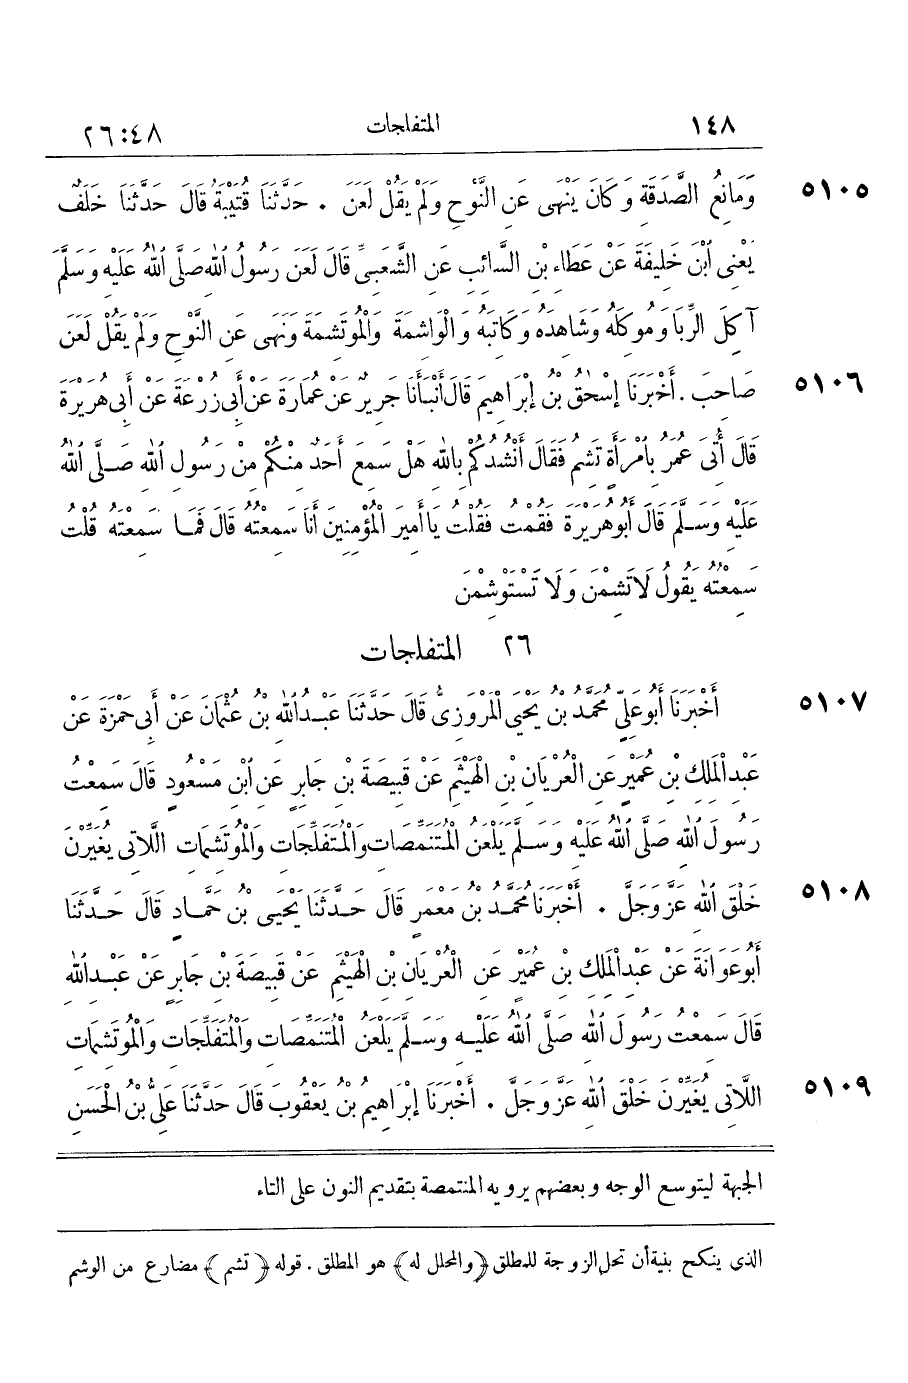 ١٤٨ المتفلجات ٤٨:٢٦
٥١٠٥ وَمَانِعَ الصَّدَقَةِ وَكَانَ يَنْهَى عَنِ النَّوْحِ وَلَمْ يَقُلْ لَعَنَ . حَدَّثَنَا قُتَيْبَةُ قَالَ حَدَّثَنَا خَلَفٌ
يَعْنِى ابْنَ خَلِيفَةَ عَنْ عَطَاءِ بْنِ السَّائِبِ عَنِ الشَّعْبِىِّ قَالَ لَعَنَ رَسُولُ اللهِ صَلَّى اللهُ عَلَيْهِ وَسَلَّمَ
آكِلَ الرِّبَا وَمُوكِلَهُ وَشَاهِدَهُ وَكَاتِبَهُ وَالْوَاشِمَةَ وَالْمُوتَشِمَةَ وَنَهَى عَنِ النَّوْحِ وَلَمْ يَقُلْ لَعَنَ
٥١٠٦ صَاحِبَ . أَخْبَرَنَا إِسْحٰقُ بْنُ إِبْرَاهِيمَ قَالَ أَنْبَأَنَا جَرِيرٌ عَنْ عُمَارَةَ عَنْ أَبِى زُرْعَةَ عَنْ أَبِى هُرَيْرَةَ
قَالَ أُتِىَ عُمَرُ بِامْرَأَةٍ تَشِمُ فَقَالَ أَنْشُدُكُمْ بِاللهِ هَلْ سَمِعَ أَحَدٌ مِنْكُمْ مِنْ رَسُولِ اللهِ صَلَّى اللهُ
عَلَيْهِ وَسَلَّمَ قَالَ أَبُو هُرَيْرَةَ فَقُمْتُ فَقُلْتُ يَا أَمِيرَ الْمُؤْمِنِينَ أَنَا سَمِعْتُهُ قَالَ فَمَا سَمِعْتَهُ قُلْتُ
سَمِعْتُهُ يَقُولُ لَا تَشِمْنَ وَلَا تَسْتَوْشِمْنَ
٢٦ المتفلجات
٥١٠٧ أَخْبَرَنَا أَبُو عَلِىٍّ مُحَمَّدُ بْنُ يَحْيَى الْمَرْوَزِىُّ قَالَ حَدَّثَنَا عَبْدُ اللهِ بْنُ عُثْمَانَ عَنْ أَبِى حَمْزَةَ عَنْ
عَبْدِ الْمَلِكِ بْنِ عُمَيْرٍ عَنِ الْعُرْيَانِ بْنِ الْهَيْثَمِ عَنْ قَبِيصَةَ بْنِ جَابِرٍ عَنِ ابْنِ مَسْعُودٍ قَالَ سَمِعْتُ
رَسُولَ اللهِ صَلَّى اللهُ عَلَيْهِ وَسَلَّمَ يَلْعَنُ الْمُتَنَمِّصَاتِ وَالْمُتَفَلِّجَاتِ وَالْمُوتَشِمَاتِ اللَّاتِى يُغَيِّرْنَ
٥١٠٨ خَلْقَ اللهِ عَزَّ وَجَلَّ . أَخْبَرَنَا مُحَمَّدُ بْنُ مَعْمَرٍ قَالَ حَدَّثَنَا يَحْيَى بْنُ حَمَّادٍ قَالَ حَدَّثَنَا
أَبُو عَوَانَةَ عَنْ عَبْدِ الْمَلِكِ بْنِ عُمَيْرٍ عَنِ الْعُرْيَانِ بْنِ الْهَيْثَمِ عَنْ قَبِيصَةَ بْنِ جَابِرٍ عَنْ عَبْدِ اللهِ
قَالَ سَمِعْتُ رَسُولَ اللهِ صَلَّى اللهُ عَلَيْهِ وَسَلَّمَ يَلْعَنُ الْمُتَنَمِّصَاتِ وَالْمُتَفَلِّجَاتِ وَالْمُوتَشِمَاتِ
٥١٠٩ اللَّاتِى يُغَيِّرْنَ خَلْقَ اللهِ عَزَّ وَجَلَّ . أَخْبَرَنَا إِبْرَاهِيمُ بْنُ يَعْقُوبَ قَالَ حَدَّثَنَا عَلِىُّ بْنُ الْحَسَنِ
الجبهة ليتوسع الوجه وبعضهم يرويه المنتمصة بتقديم النون على التاء
الذى ينكح بنية أن تحل الزوجة للمطلق ﴿والمحلل له﴾ هو المطلق . قوله ﴿تشم﴾ مضارع من الوشم